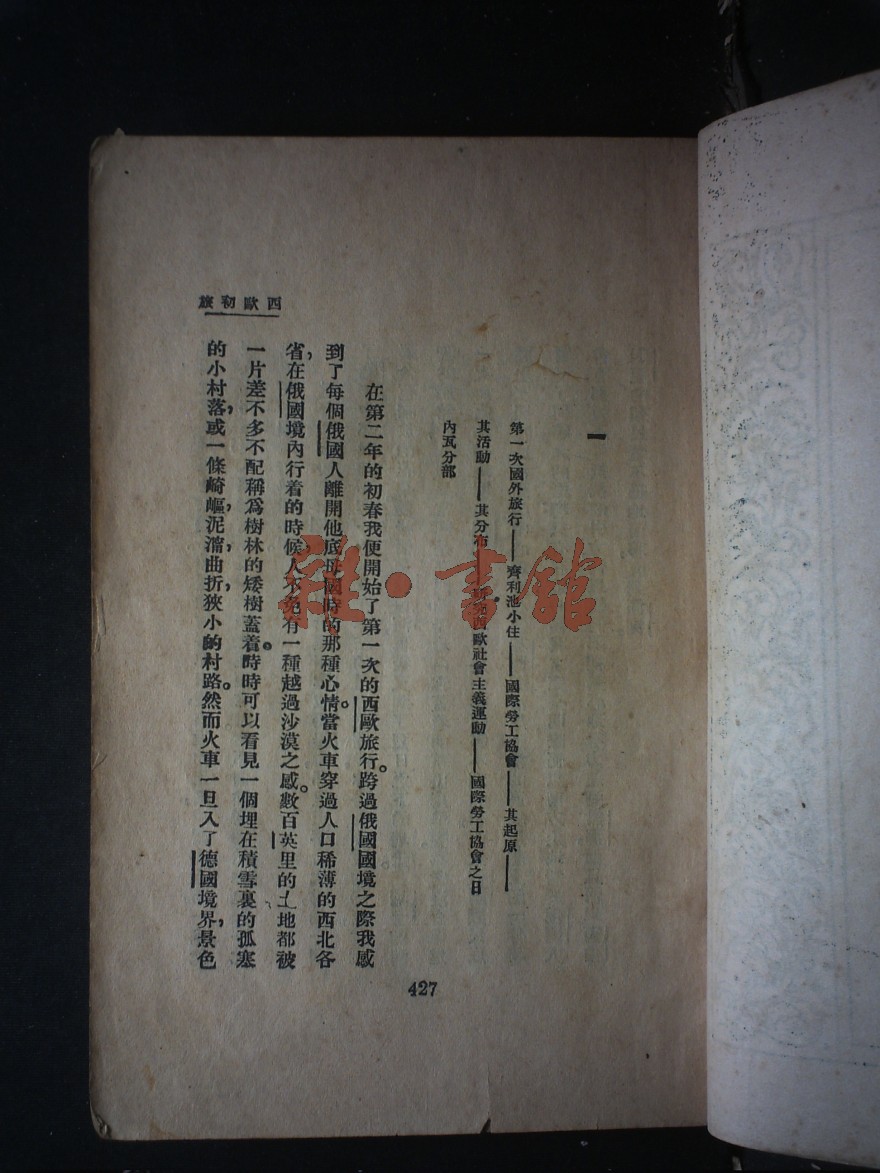 西歐初旅
一
第一次國外旅行——齊利池小住——國際勞工協會——其起原——
其活動——其分布——西歐社會主義運動——國際勞工協會之日
內瓦分部
在第二年的初春我便開始了第一次的西歐旅行。跨過俄國國境之際我感
到了每個俄國人離開他底母國時的那種心情。當火車穿過人口稀薄的西北各
省，在俄國境內行着的時候人不免有一種越過沙漠之感。數百英里的土地都被
一片差不多不配稱爲樹林的矮樹蓋着。時時可以看見一個埋在積雪裏的孤寒
的小村落，或一條崎嶇，泥濘，曲折，狹小的村路。然而火車一旦入了德國境界，景色
427
雜·書館